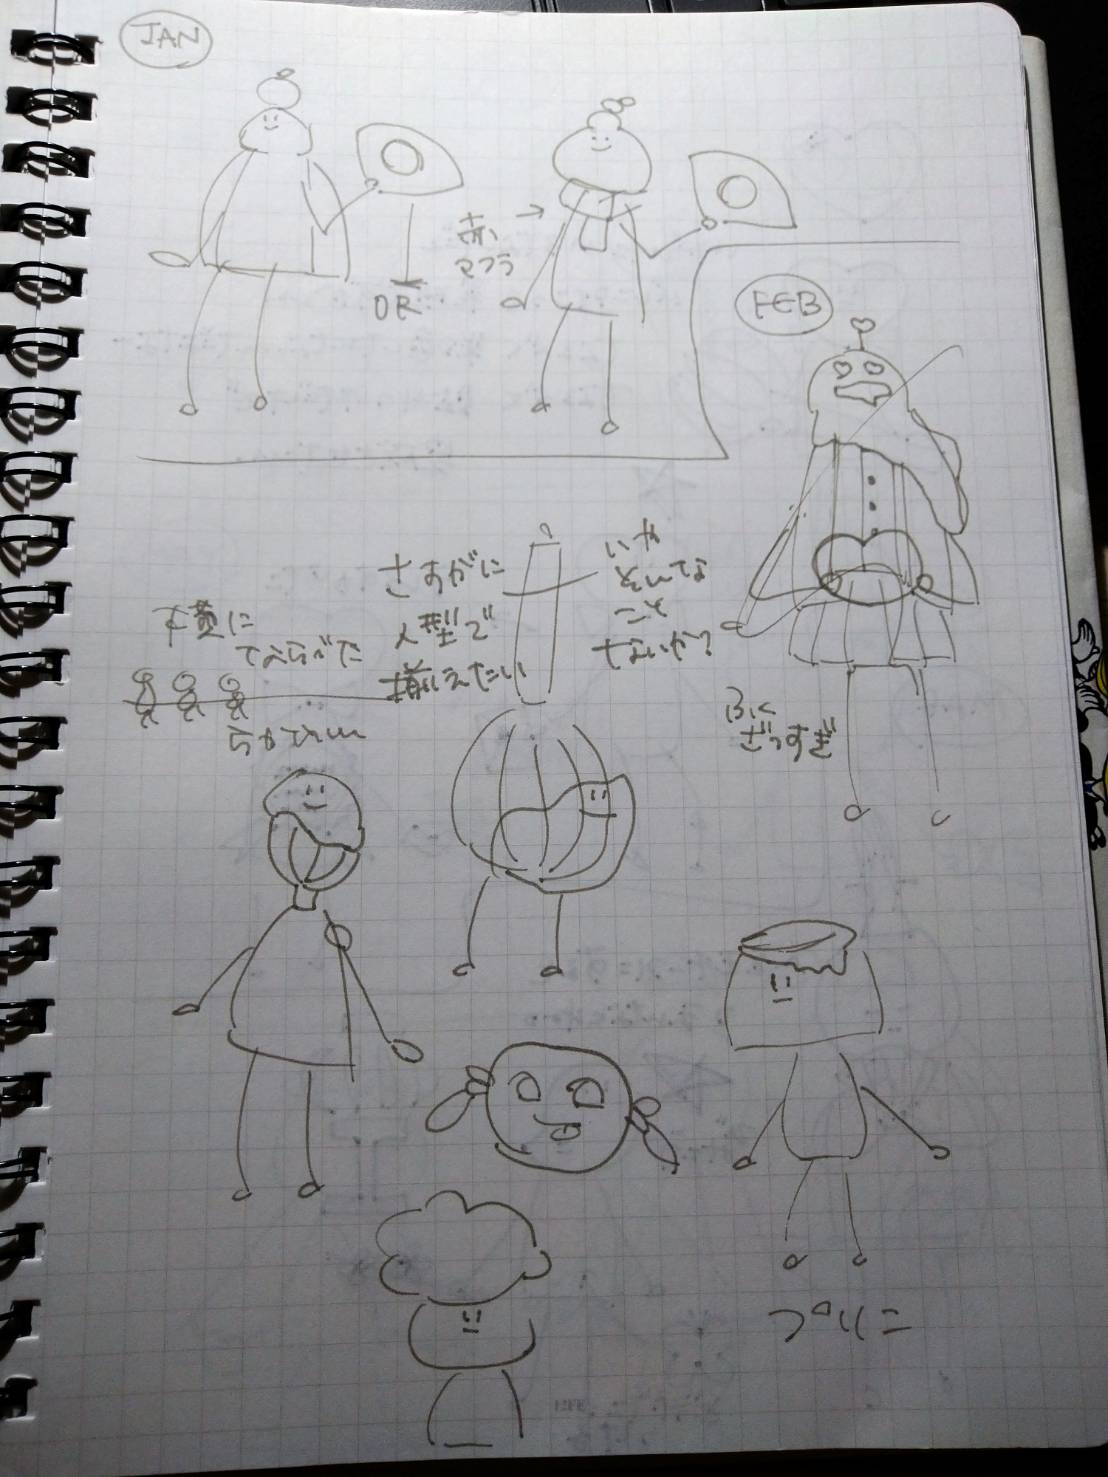 JAN
赤い
マフラ
OR
FEB
さすがに
人型で
揃えたい
いや
そんな
こと
ないか?
横に
ならべた
らかわいい
ふく
ざつすぎ
プリン